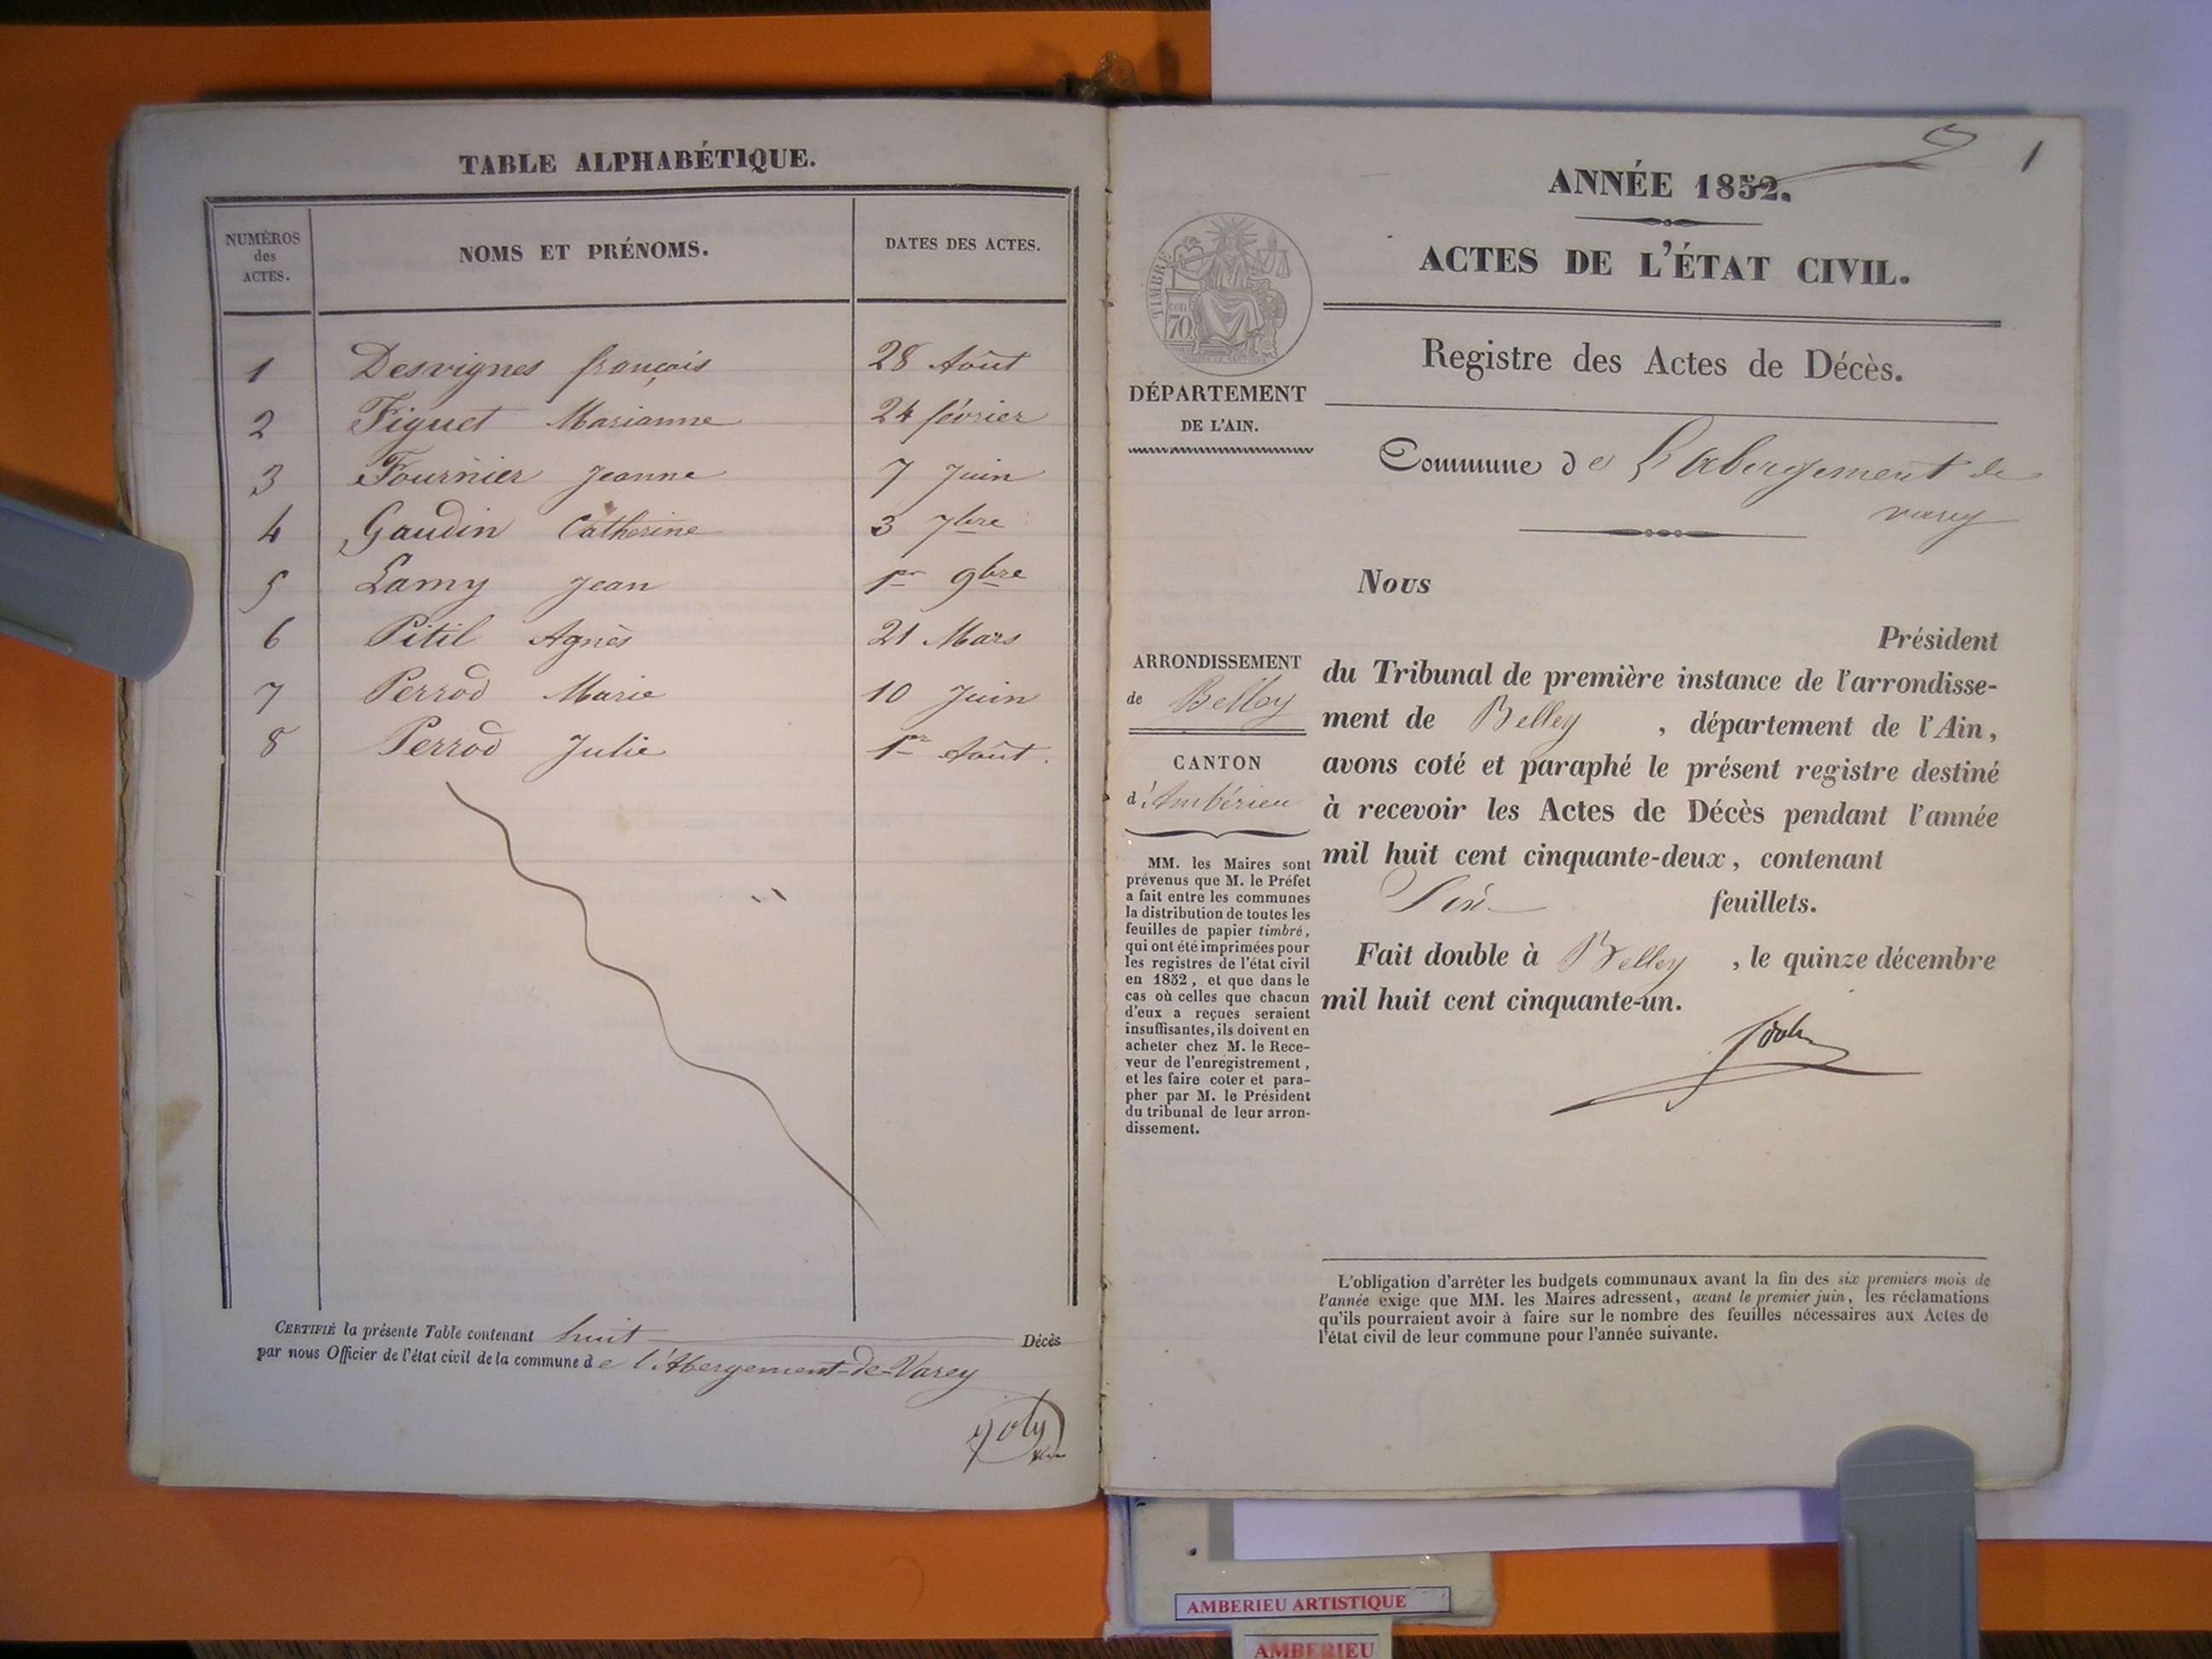 TABLE ALPHABÉTIQUE.
NUMÉROS
des
ACTES.
NOMS ET PRÉNOMS.
DATES DES ACTES.
1 Desvignes françois 28 Août
2 Figuet Marianne 24 février
3 Fournier Jeanne 7 Juin
4 Gaudin Catherine 3 7bre
5 Lamy Jean 1er 9bre
6 Pitil Agnès 21 Mars
7 Perrod Marie 10 Juin
8 Perrod Julie 1er Août.
CERTIFIÉ la présente Table contenant huit Décès
par nous Officier de l'état civil de la commune de l'Abergement-de-Varey
Joly
1
ANNÉE 1852.
ACTES DE L'ÉTAT CIVIL.
Registre des Actes de Décès.
TIMBRE
70
DÉPARTEMENT
DE L'AIN.
Commune de L'abergement de
varey
Nous
Président
du Tribunal de première instance de l'arrondisse-
ment de Belley , département de l'Ain,
avons coté et paraphé le présent registre destiné
à recevoir les Actes de Décès pendant l'année
mil huit cent cinquante-deux, contenant
Six feuillets.
Fait double à Belley , le quinze décembre
mil huit cent cinquante-un.
ARRONDISSEMENT
de Belley
CANTON
d'Ambérieu
MM. les Maires sont
prévenus que M. le Préfet
a fait entre les communes
la distribution de toutes les
feuilles de papier timbré,
qui ont été imprimées pour
les registres de l'état civil
en 1852, et que dans le
cas où celles que chacun
d'eux a reçues seraient
insuffisantes, ils doivent en
acheter chez M. le Rece-
veur de l'enregistrement,
et les faire coter et para-
pher par M. le Président
du tribunal de leur arron-
dissement.
L'obligation d'arrêter les budgets communaux avant la fin des six premiers mois de
l'année exige que MM. les Maires adressent, avant le premier juin, les réclamations
qu'ils pourraient avoir à faire sur le nombre des feuilles nécessaires aux Actes de
l'état civil de leur commune pour l'année suivante.
AMBERIEU ARTISTIQUE
AMBERIEU